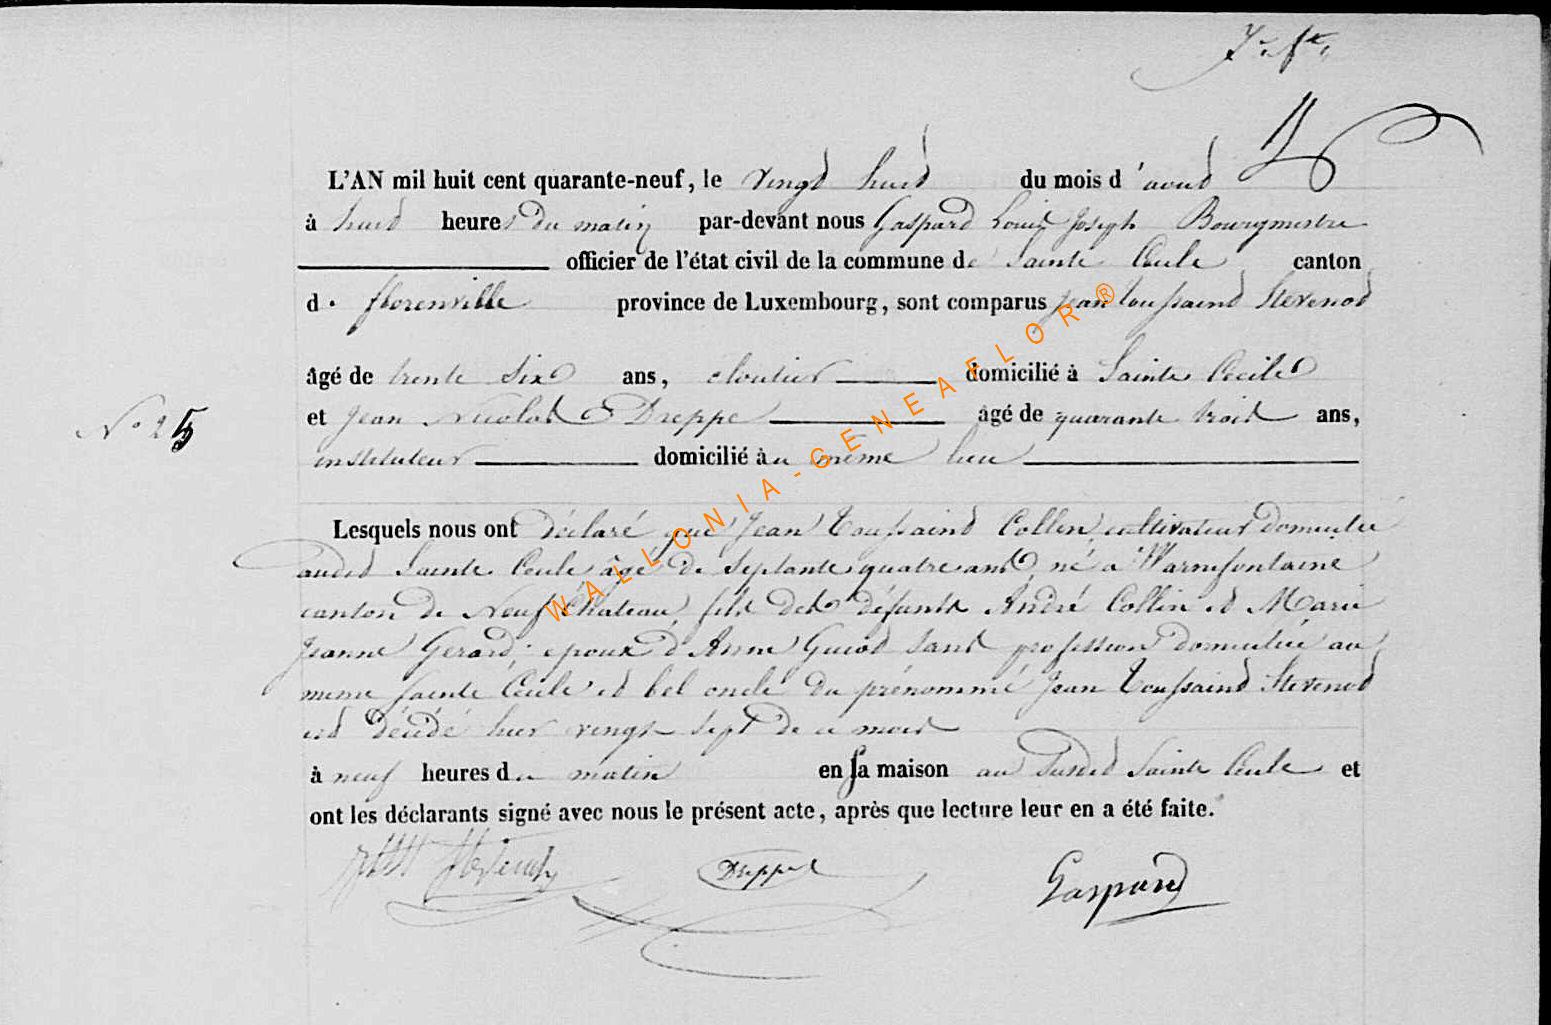 7e ft.
L'AN mil huit cent quarante-neuf, le vingt huit du mois d'aout
à huit heures du matin par-devant nous Gaspard Louis Joseph Bourgmestre
officier de l'état civil de la commune de Sainte Cecile canton
de florenville province de Luxembourg, sont comparus Jean toussaint Stevenot
âgé de trente six ans, cloutier domicilié à Sainte Cecile
N° 25
et Jean Nicolas Dreppe âgé de quarante trois ans,
instituteur domicilié au même lieu
Lesquels nous ont déclaré que Jean Toussaint Collin cultivateur domicilié
audit Sainte Cecile âgé de septante quatre ans né à Warmifontaine
canton de Neufchateau, fils des défunts André Collin et Marie
Jeanne Gerard: epoux d'Anne Guiot sans profession domiciliée au
meme Sainte Cécile et bel oncle du prénommé Jean Toussaint Stevenot
est décédé hier vingt sept de ce mois
à neuf heures du matin en sa maison au susdit Sainte Cecile et
ont les déclarants signé avec nous le présent acte, après que lecture leur en a été faite.
Stevenot Dreppe Gaspard
WALLONIA-GENEAFLOR®